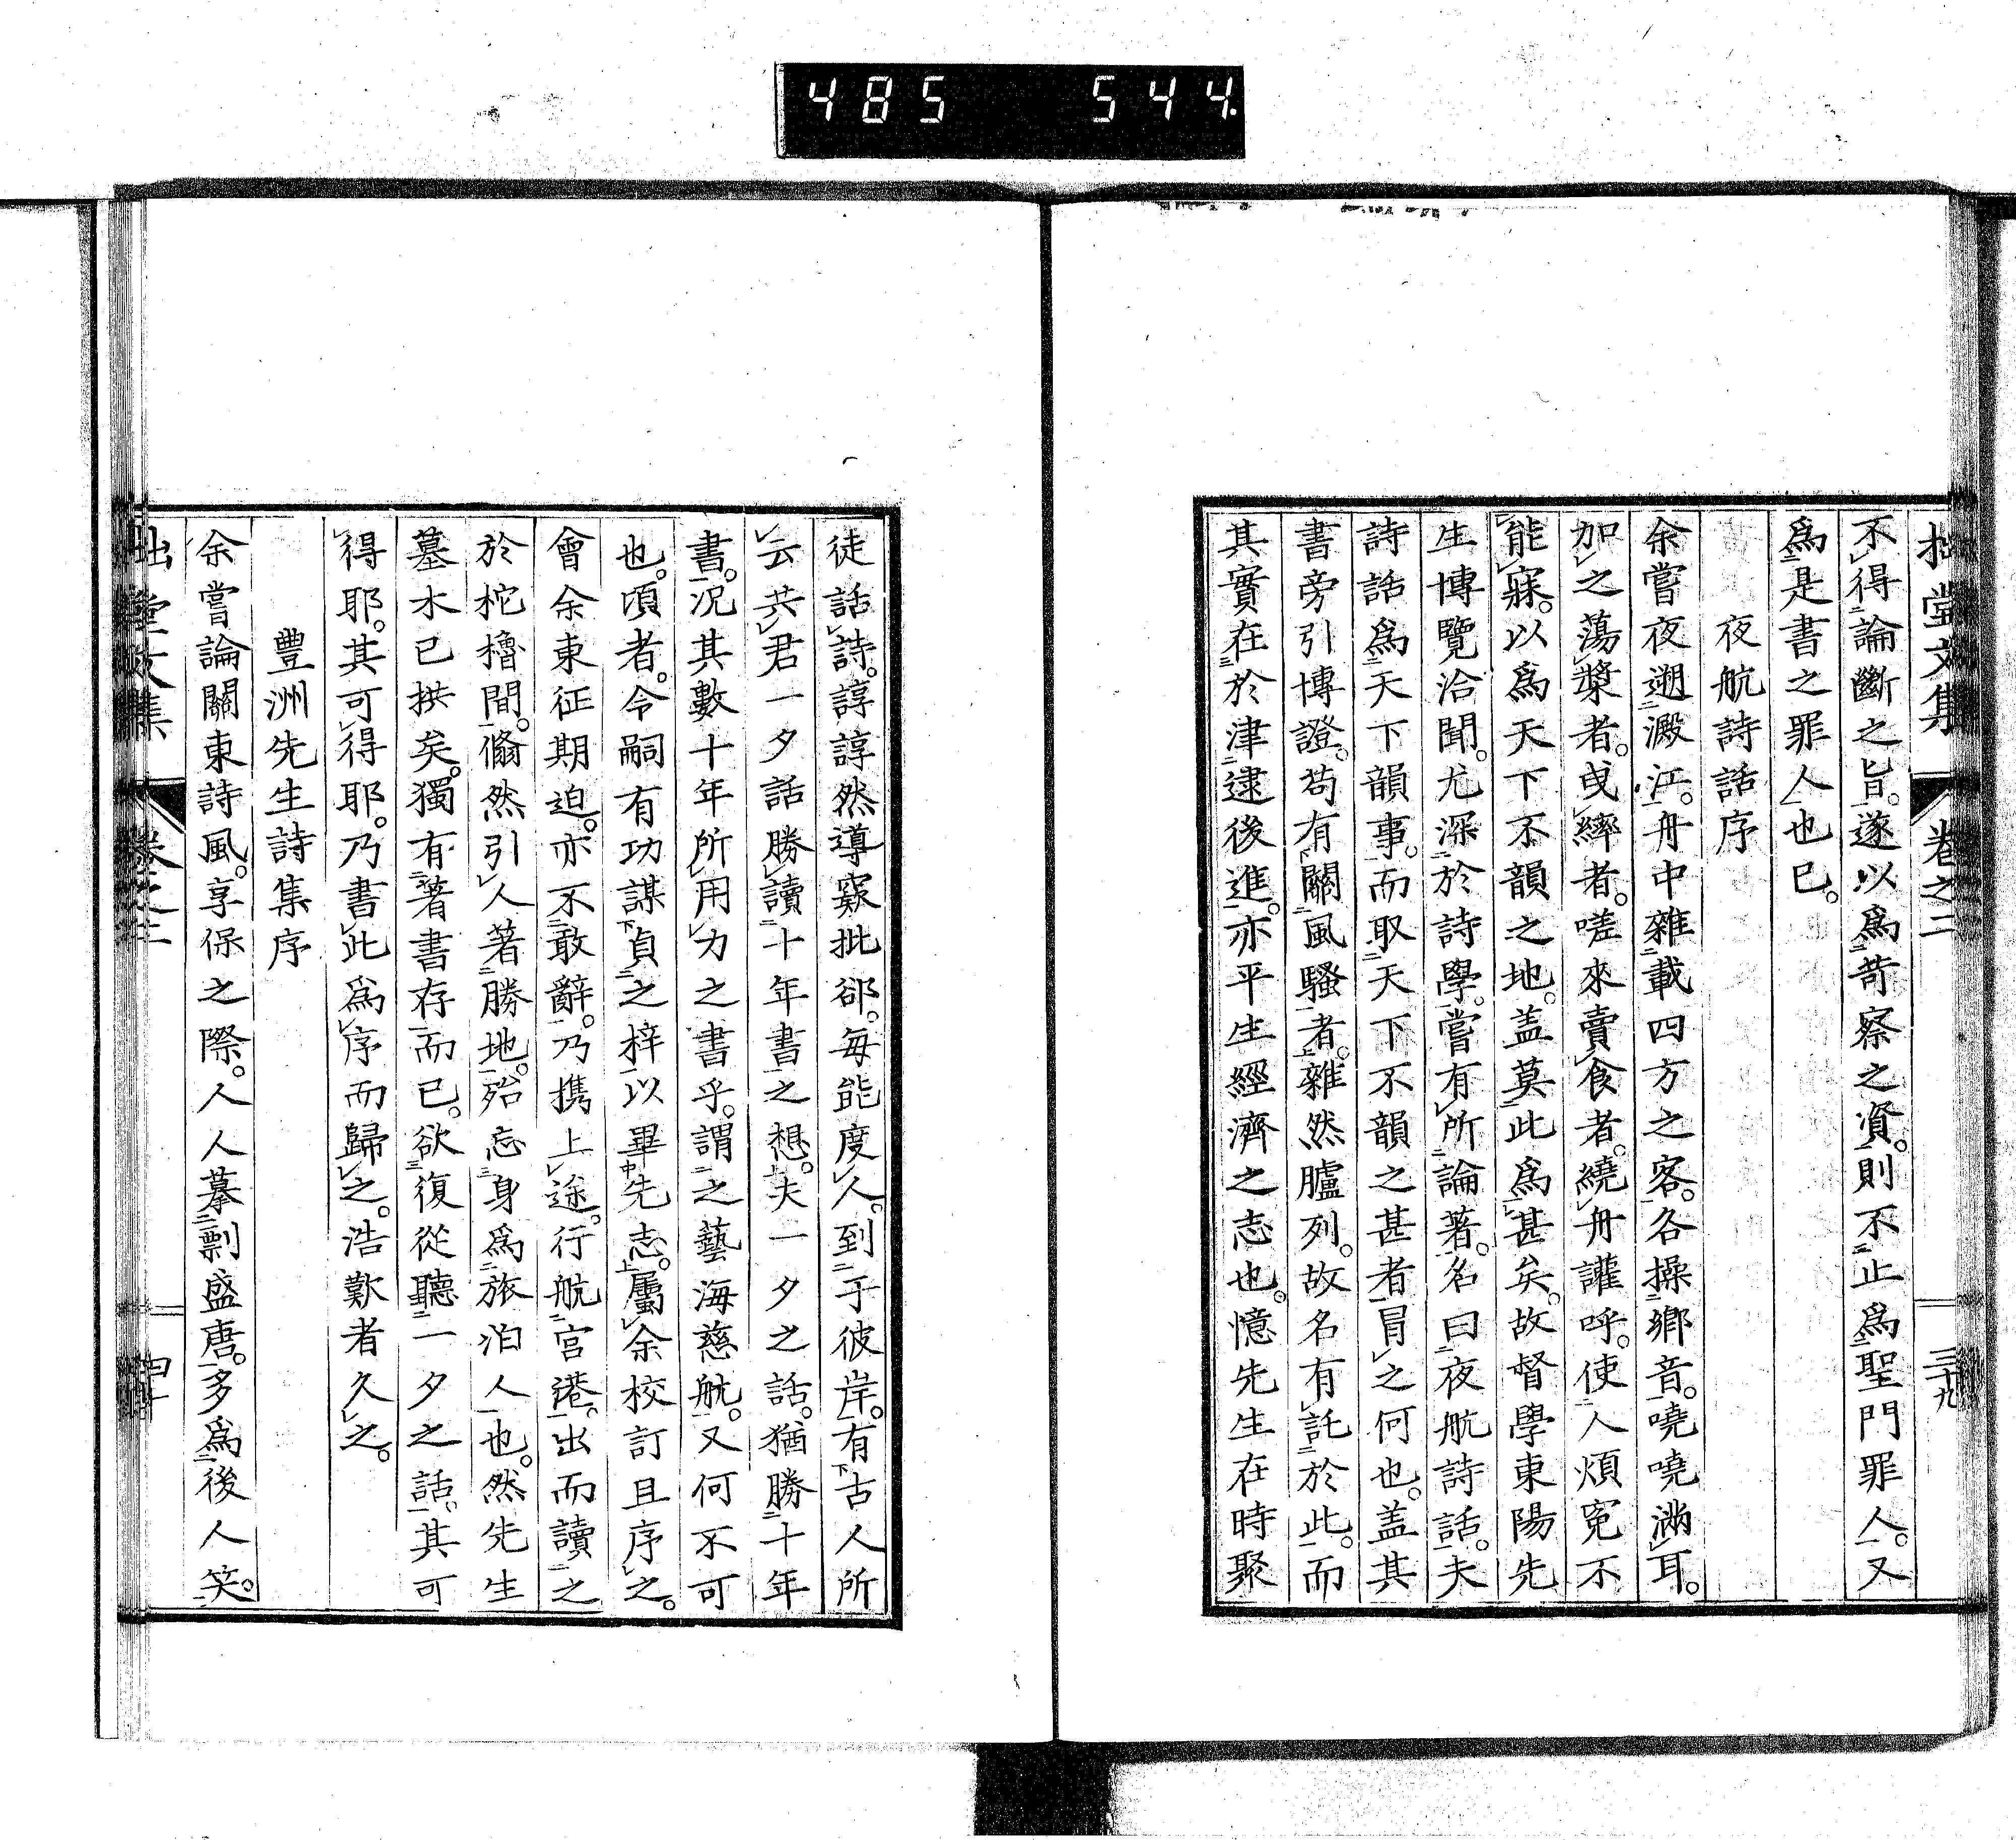 485 544.
拙堂文集 卷之二 三十九
不得論斷之旨。遂以爲苛察之資。則不止爲聖門罪人。又
爲是書之罪人也已。
夜航詩話序
余嘗夜遡澱江。舟中雜載四方之客。各操鄉音。嘵嘵滿耳。
加之蕩槳者。曳縴者。嗟來賣食者。繞舟讙呼。使人煩冤不
能寐。以爲天下不韻之地。盖莫此爲甚矣。故督學東陽先
生博覽洽聞。尤深於詩學。嘗有所論著。名曰夜航詩話。夫
詩話爲天下韻事。而取天下不韻之甚者冒之何也。盖其
書旁引博證。苟有關風騷者。雜然臚列。故名有託於此。而
其實在於津逮後進。亦平生經濟之志也。憶先生在時聚
徒話詩。諄諄然導窾批郤。每能度人。到于彼岸。有古人所
云共君一夕話勝讀十年書之想。夫一夕之話。猶勝十年
書。况其數十年所用力之書乎。謂之藝海慈航。又何不可
也。頃者。令嗣有功謀貞之梓以畢先志。屬余校訂且序之。
會余東征期迫。亦不敢辭。乃携上途。行航宮港。出而讀之
於柁櫓間。翛然引人著勝地。殆忘身爲旅泊人也。然先生
墓木已拱矣。獨有著書存而已。欲復從聽一夕之話。其可
得耶。其可得耶。乃書此爲序而歸之。浩歎者久之。
豐洲先生詩集序
余嘗論關東詩風。享保之際。人人摹剽盛唐。多爲後人笑。
拙堂文集 卷之二 四十